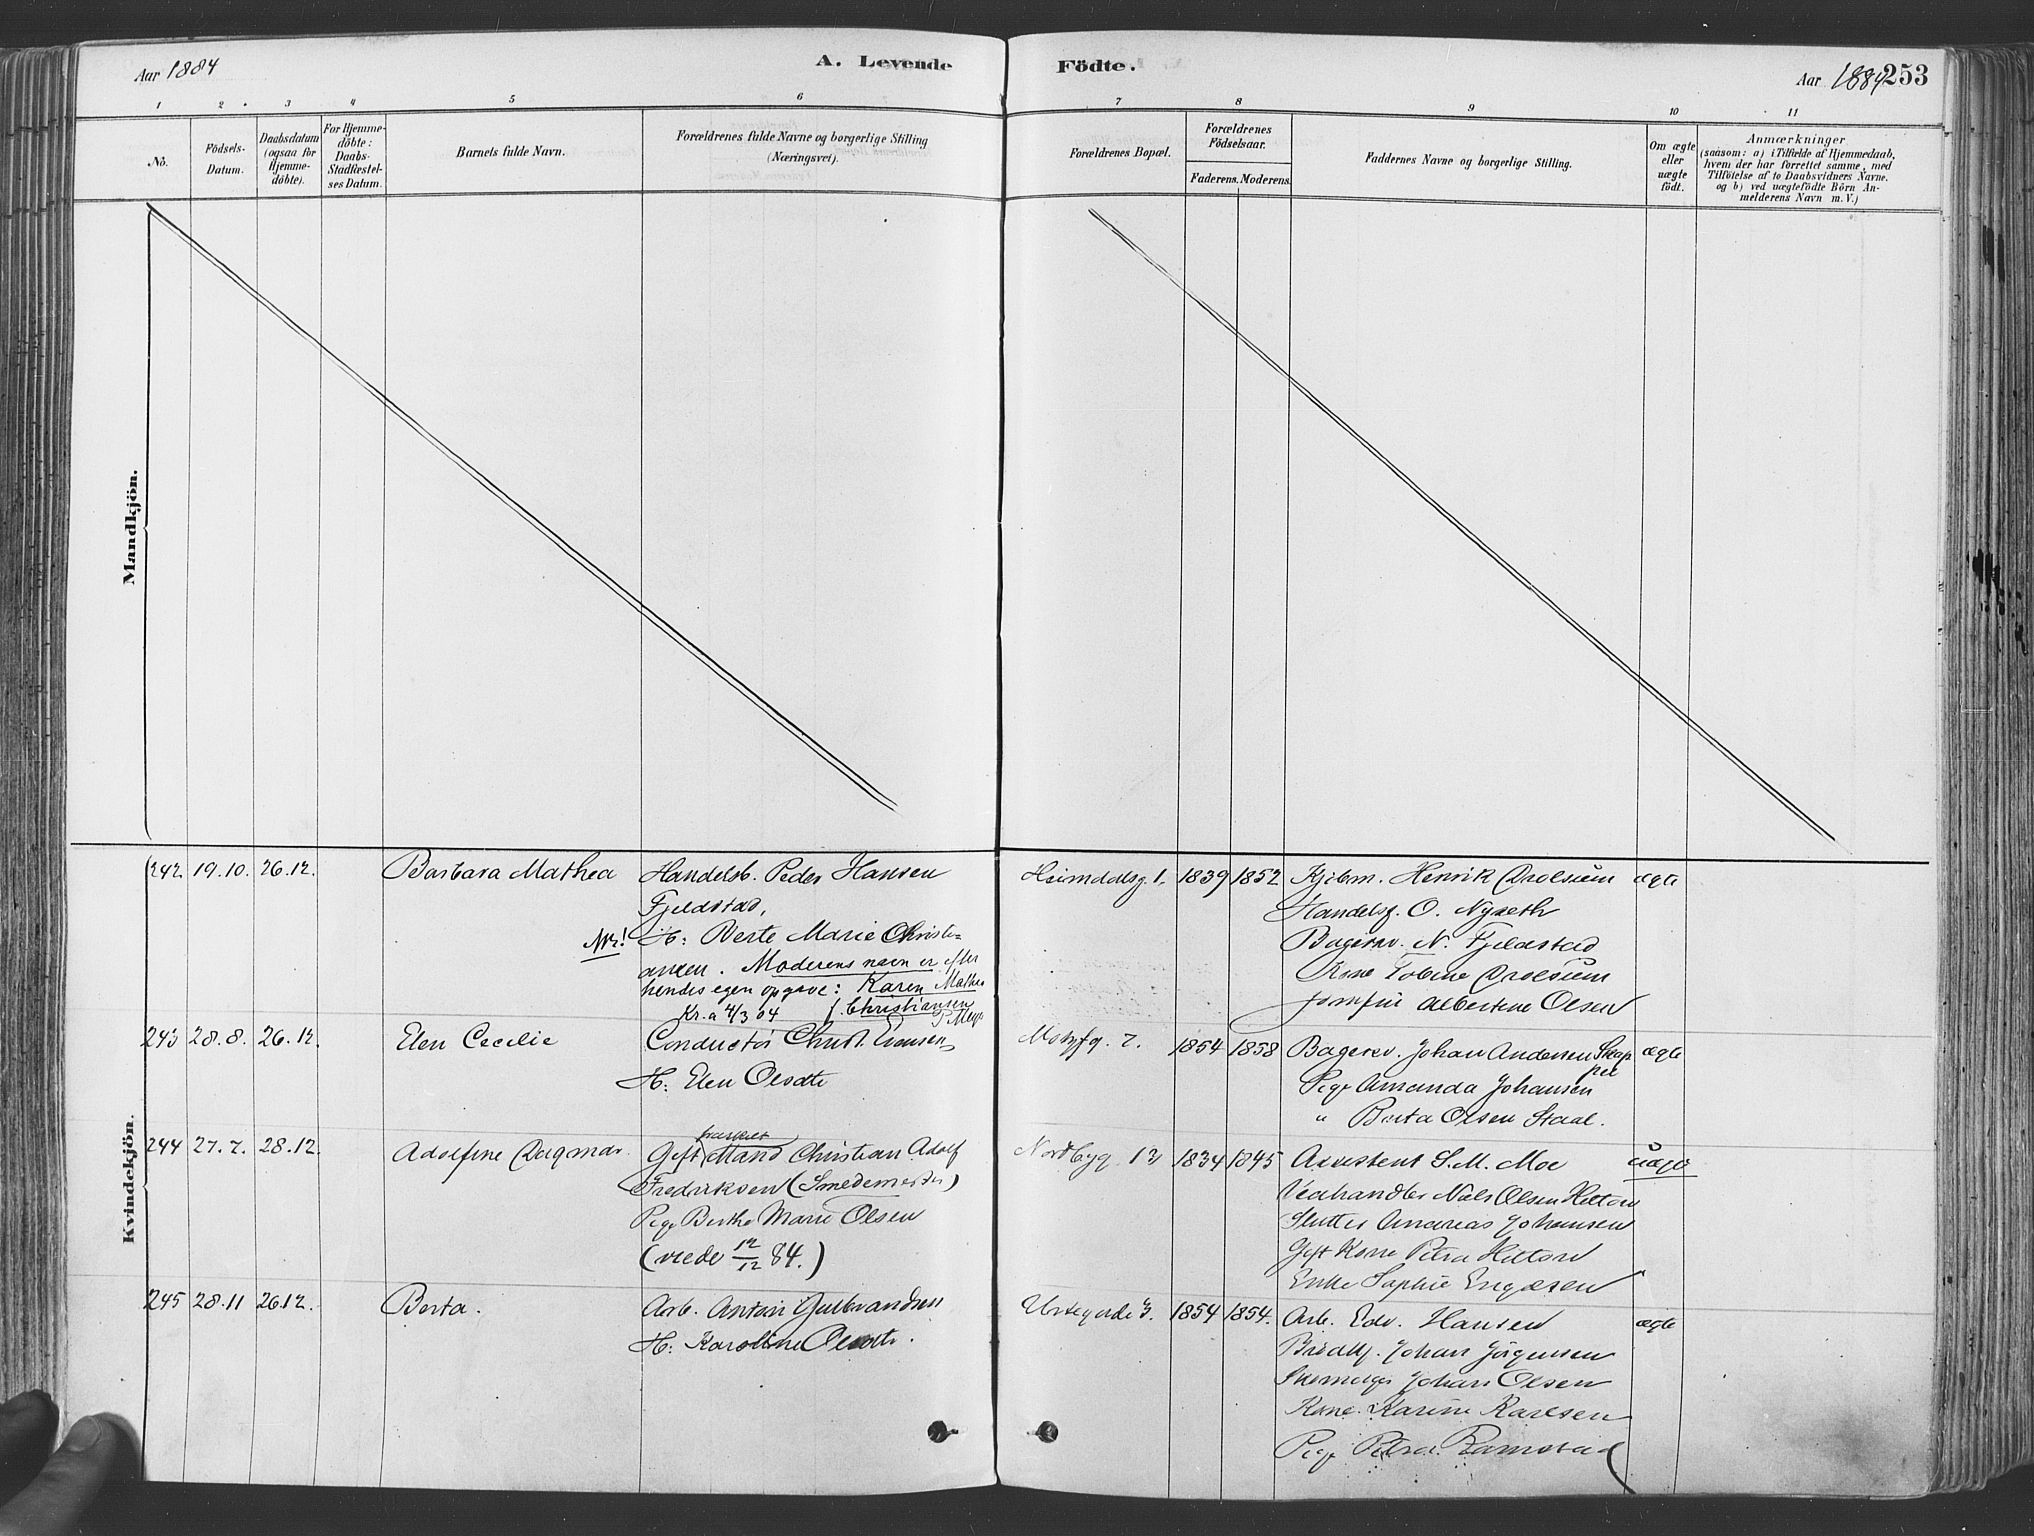 Aar 1884
A. Levende Födte.
Aar 1884 253
1 2 3 4 5 6 7 8 9 10 11
No.
Födsels-Datum.
Daabsdatum (ogsaa for Hjemme-döbte).
For Hjemme-döbte: Daabs-Stadfæstel-ses Datum.
Barnets fulde Navn.
Forældrenes fulde Navne og borgerlige Stilling (Næringsvei).
Forældrenes Bopæl.
Forældrenes Födselsaar.
Faderens. Moderens.
Faddernes Navne og borgerlige Stilling.
Om ægte eller uægte födt.
Anmærkninger
(saasom: a) i Tilfælde af Hjemmedaab,
hvem der har forrettet samme, med
Tilföielse af to Daabsvidners Navne.
og b) ved uægtefödte Börn An-
melderens Navn m. V.)
Mandkjön.
Kvindekjön.
242. 19.10. 26.12. Barbara Mathea
Handelsb. Peder Hansen
Fjeldstad,
H: Berte Marie Christi=
ansen. Moderens navn er efter
hendes egen opgave: Karen Mathea
Kr.a 4/3 04 Christiansen
Heimdalsg. 1, 1839 1852
Kjöbm. Henrik Drolsum
Handelsf. O. Nyseth
Bagersv. N. Fjeldstad
Kone Tobine Drolsum
Jomfru Albertine Olsen
ægte
243 28.8. 26.12. Elen Cecilie
Conductör Christ. Evensen
H: Elen Olsdtr
7. 1854 1858
Bagersv. Johan Andersen
Pige Amanda Johansen
" Berta Olsen Staal.
ægte
244 27.7. 28.12. Adolfine Dagmar
Gift fraskilt Mand Christian Adolf
Fredriksen (Smedemester)
Pige Berthe Marie Olsen
(viede 12/12 84.)
Nordbyg. 12 1834 1845
Assistent S. M. Moe
Vedhandler Nils Olsen
Andreas Johansen
Gift Kone Petra
Enke Sophie Engesen
uægte
245 28.11 26.12. Berta.
Arb. Anton Gulbrandsen
H: Karoline Olsdtr.
Urtegade 1854 1854.
Arb. Edv. Hansen
Johan Jörgensen
Johan Olsen
Kone Karine Karlsen
Pige Petra Ramstad
ægte